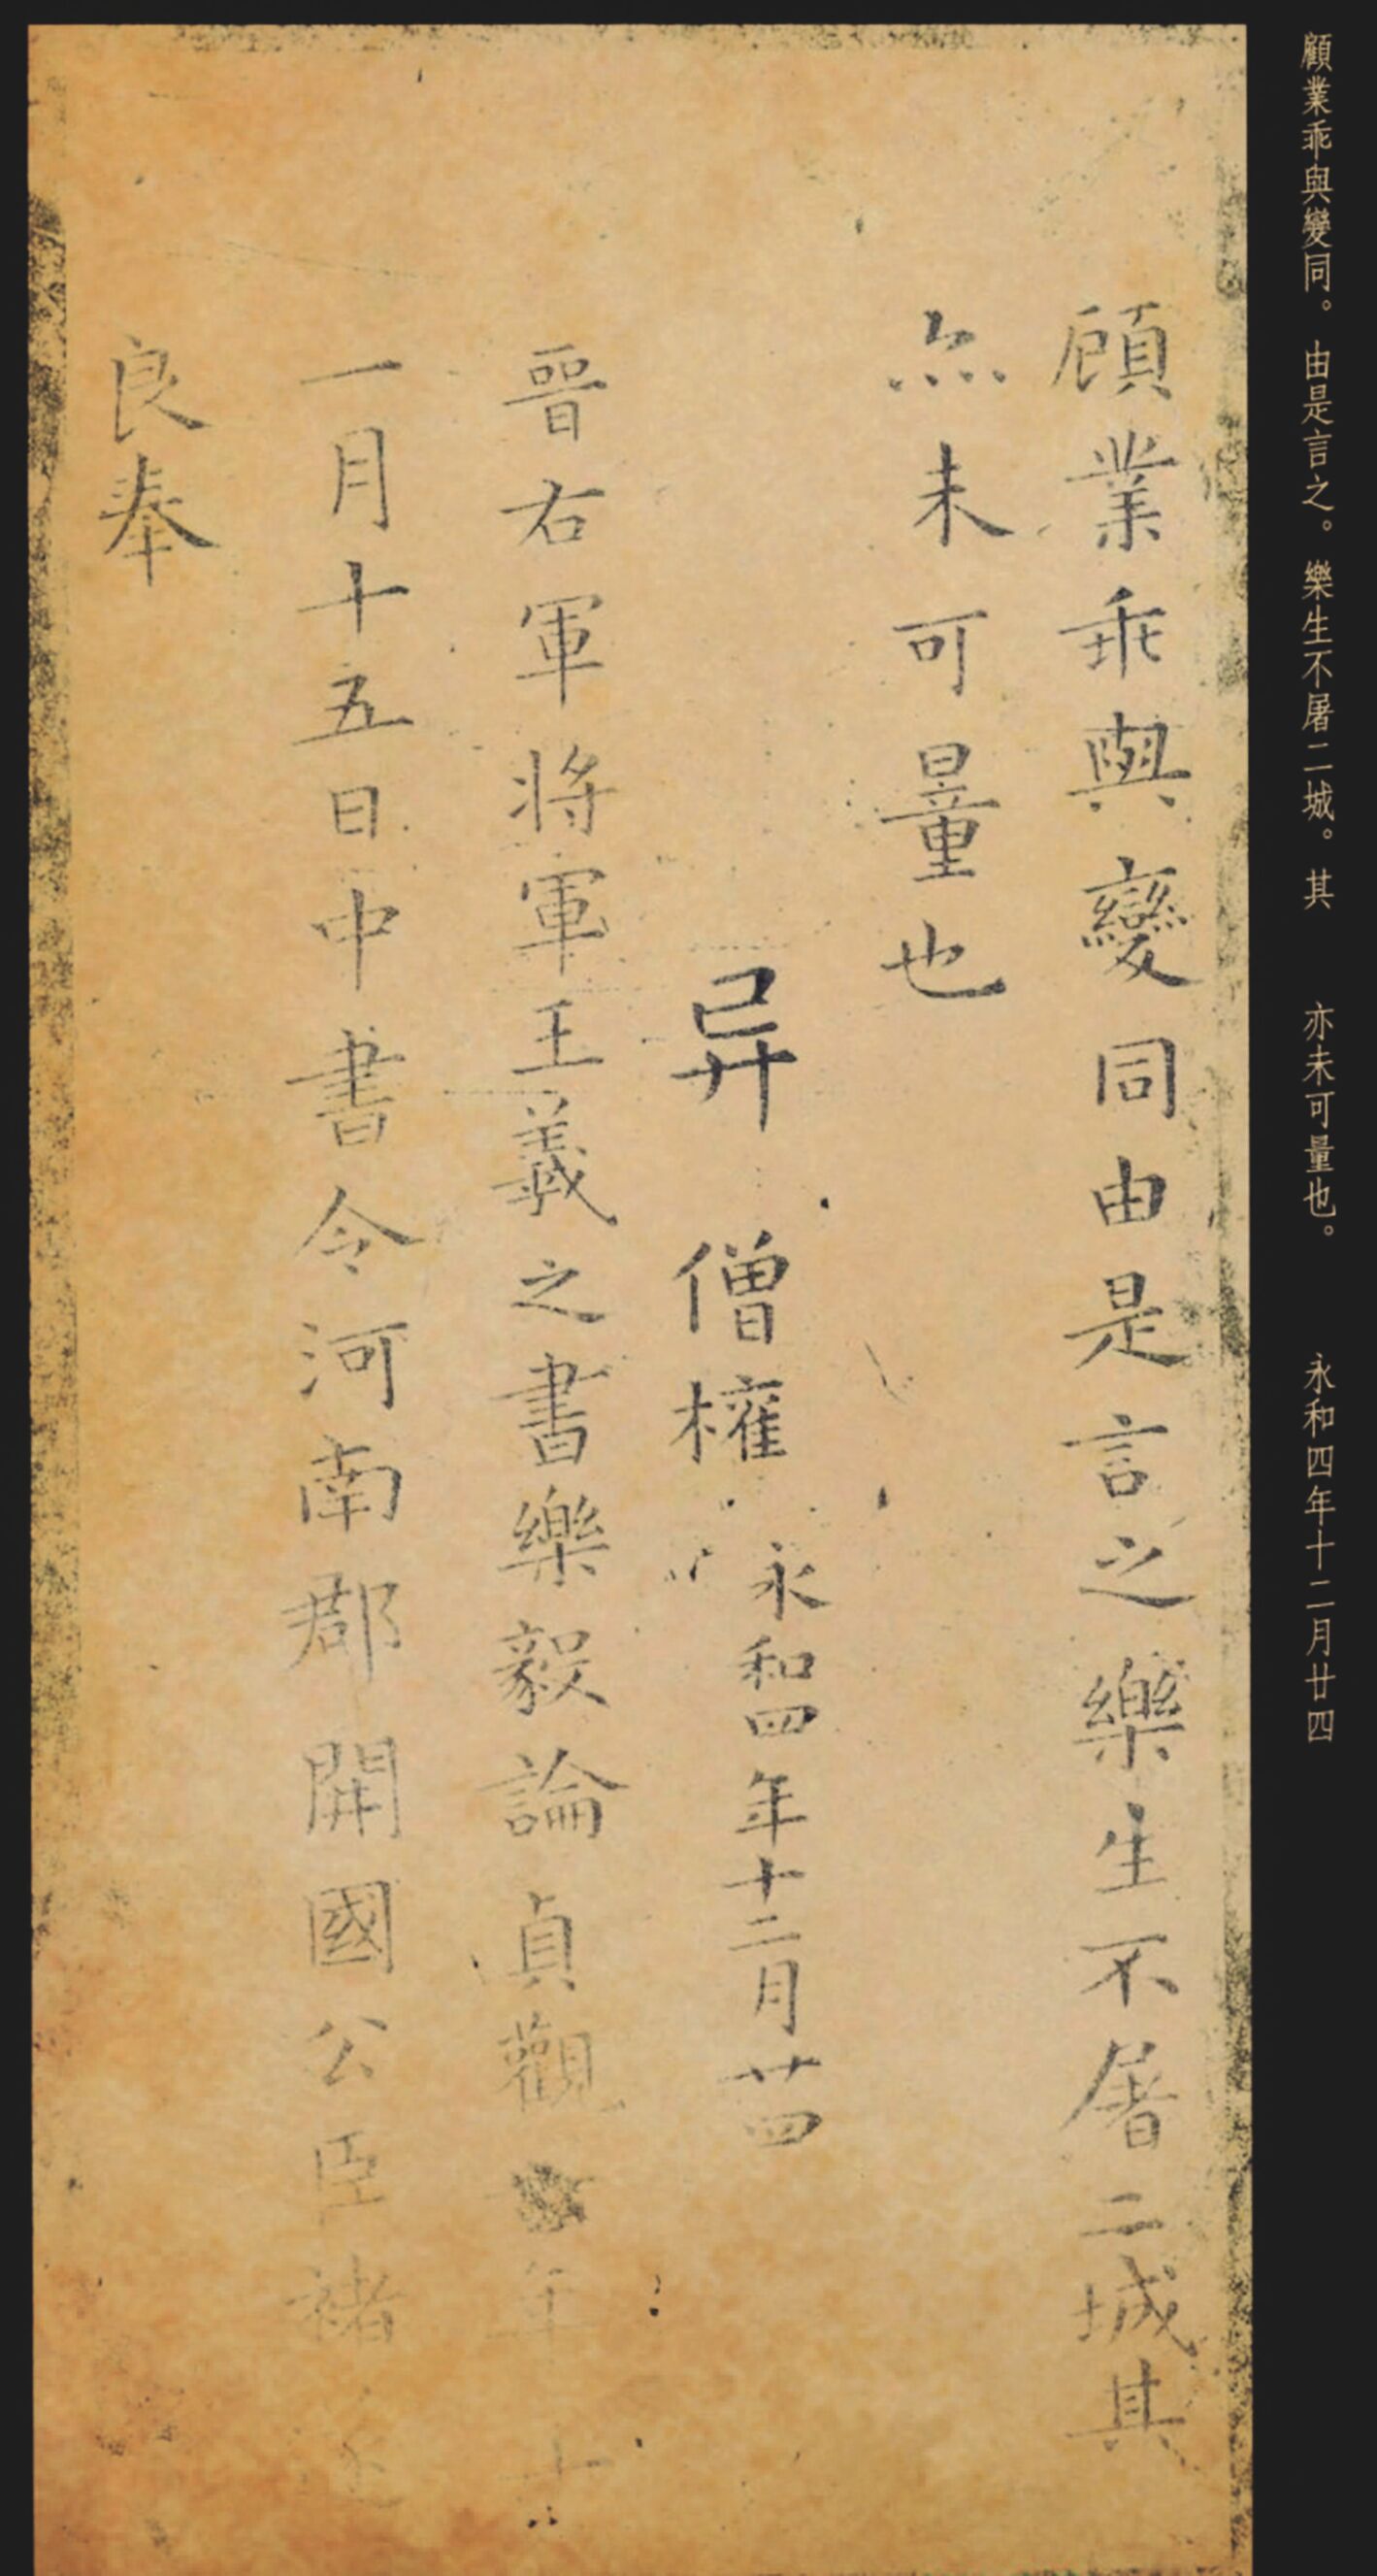 顧業乖與變同。由是言之。樂生不屠二城。其 亦未可量也。 永和四年十二月廿四
顧業乖與變同由是言之樂生不屠二城其
亦未可量也
异 僧權
永和四年十二月廿四
晉右軍將軍王羲之書樂毅論貞觀年十
一月十五日中書令河南郡開國公臣褚遂
良奉